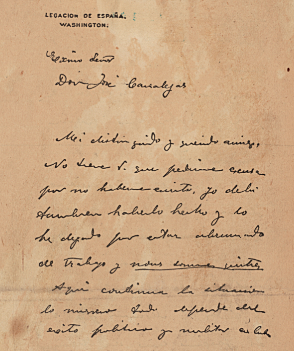 LEGACION DE ESPAÑA.
WASHINGTON.
Exčmo Señor
Don José Canalejas
Mi distinguido y querido amigo,
No tiene V. que pedirme excusa
por no haberme escrito, yo debí
tambien haberlo hecho y lo
he dejado por estar abrumado
de trabajo y nous sommes quittes.
Aqui continua la situacion
lo mismo todo depende del
exito politico y militar en Cuba